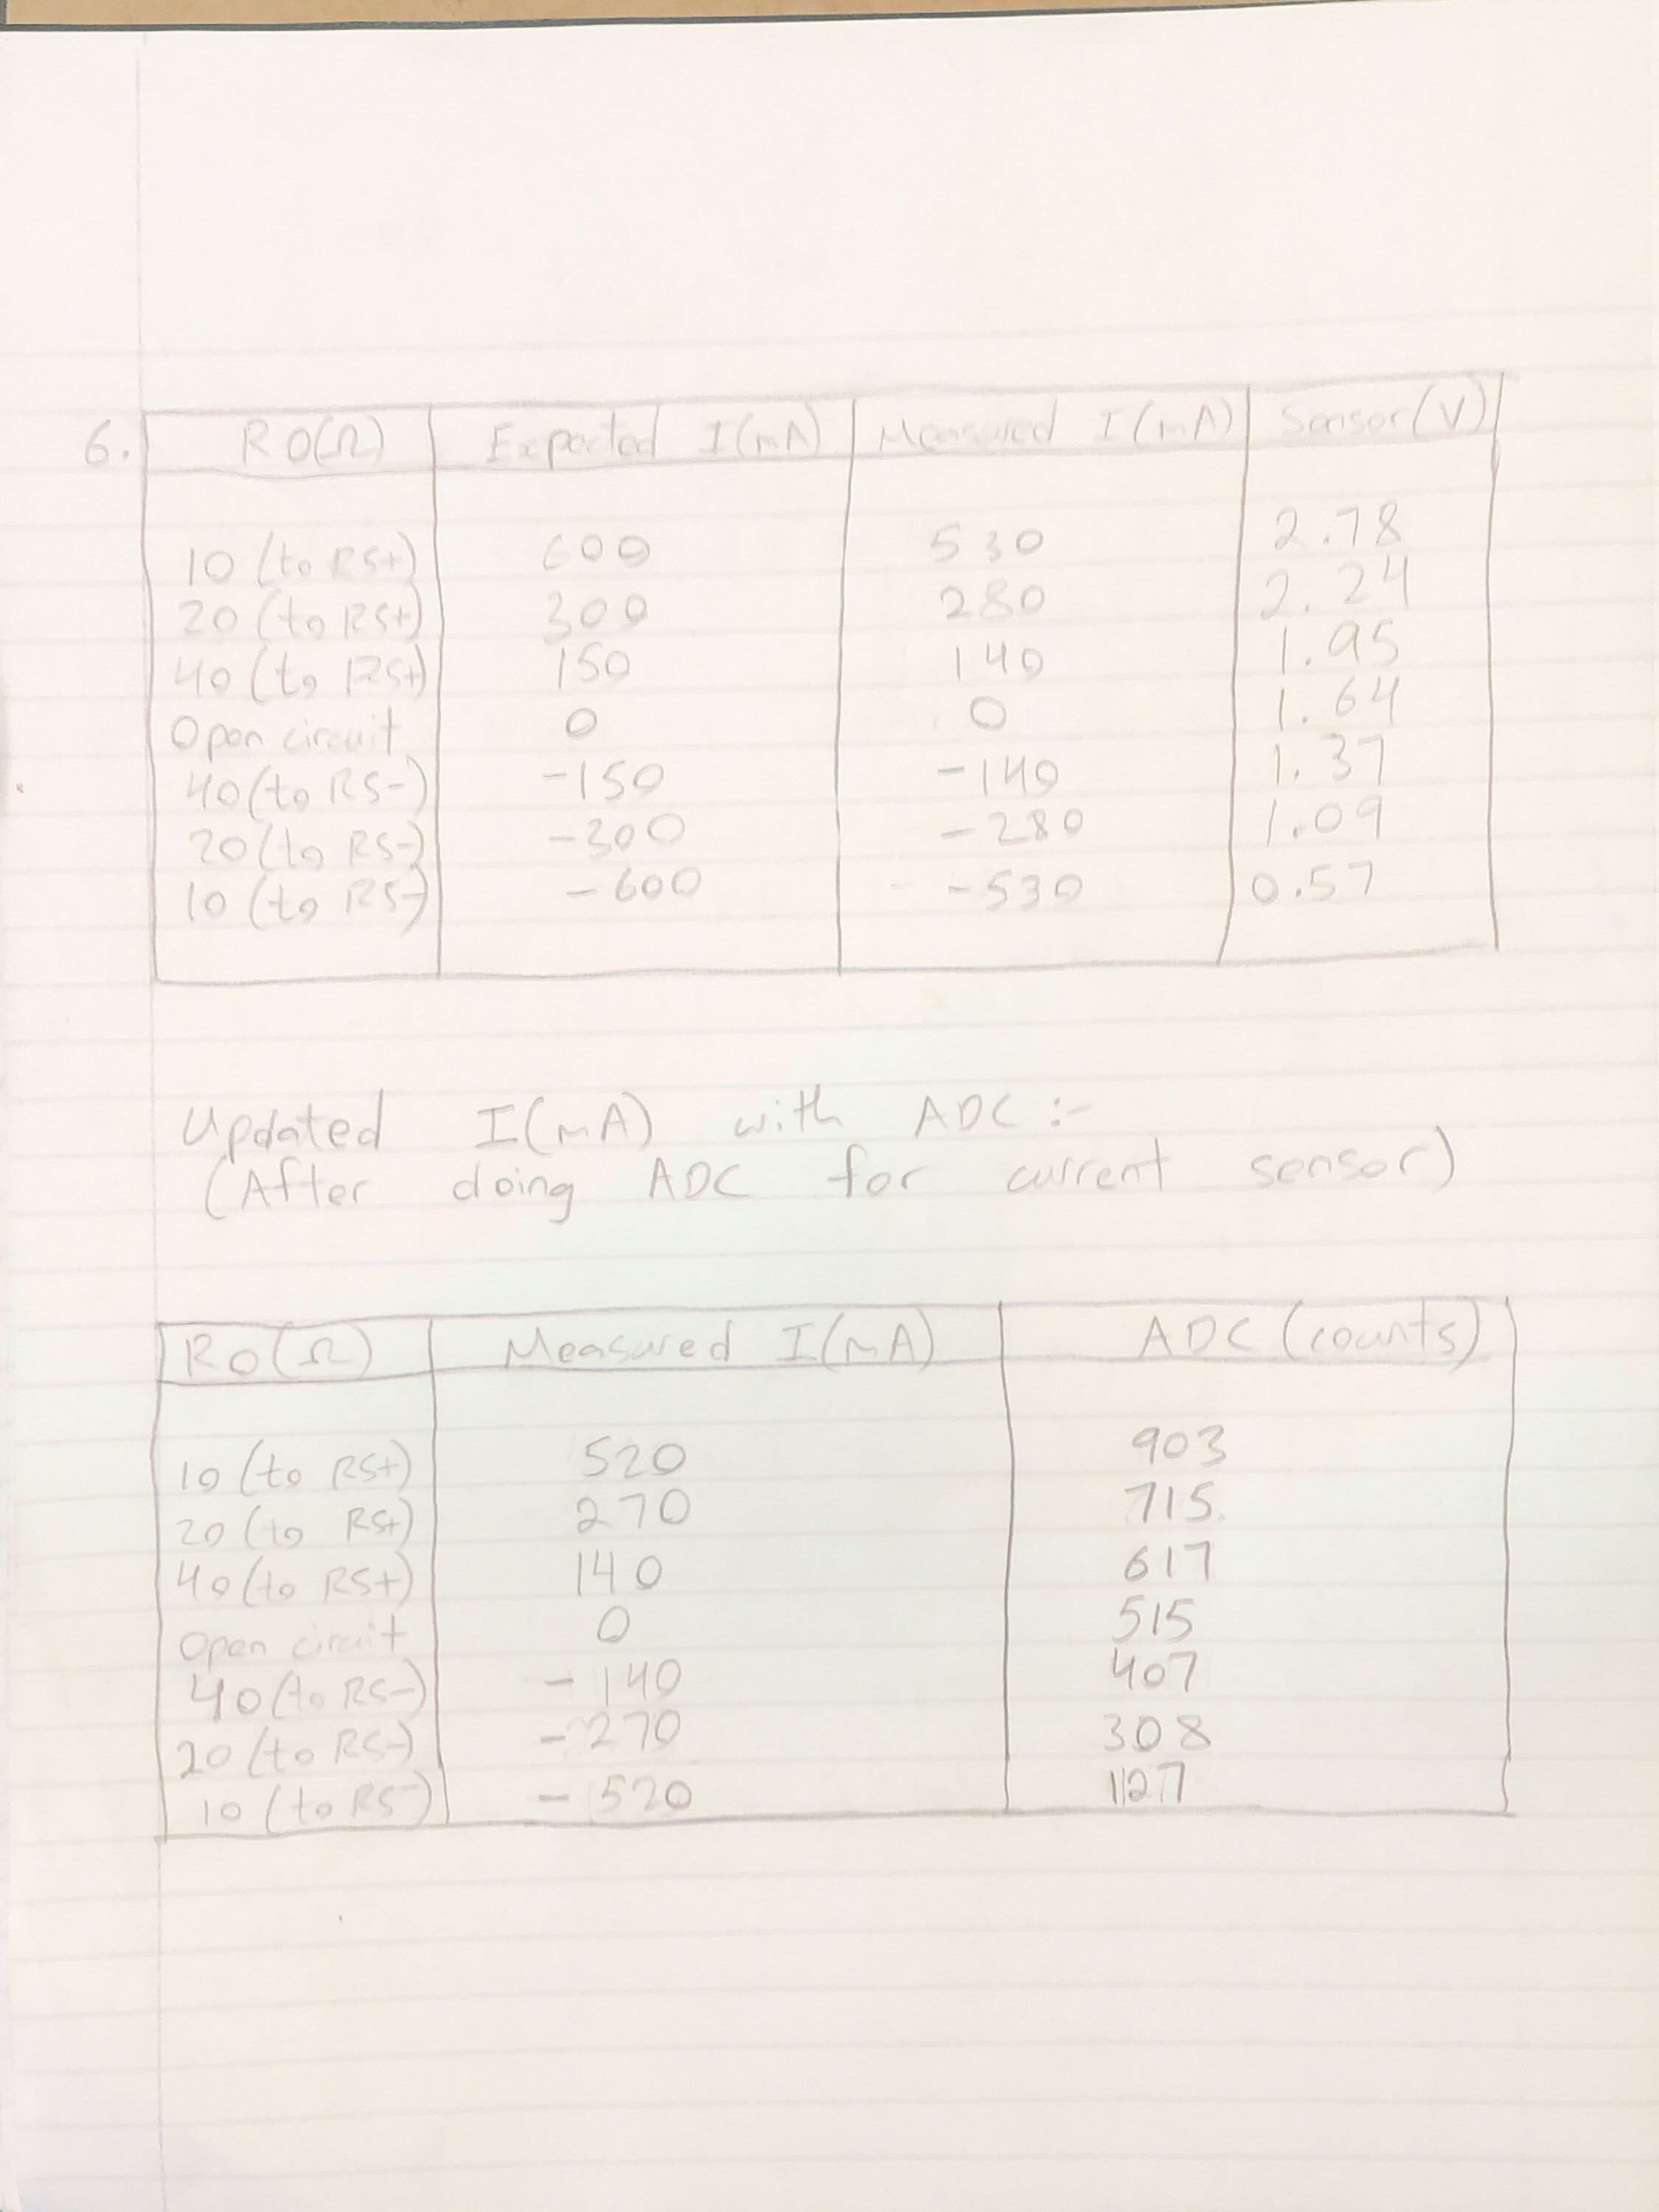 6. RO(Ω) Expected I(mA) Measured I(mA) Sensor(V)
10 (to RS+) 600 530 2.78
20 (to RS+) 300 280 2.24
40 (to RS+) 150 140 1.95
Open circuit 0 0 1.64
40 (to RS-) -150 -140 1.37
20 (to RS-) -300 -280 1.09
10 (to RS-) -600 -530 0.57
Updated I(mA) with ADC :-
(After doing ADC for current sensor)
RO(Ω) Measured I(mA) ADC (counts)
10 (to RS+) 520 903
20 (to RS+) 270 715
40 (to RS+) 140 617
Open circuit 0 515
40 (to RS-) -140 407
20 (to RS-) -270 308
10 (to RS-) -520 127